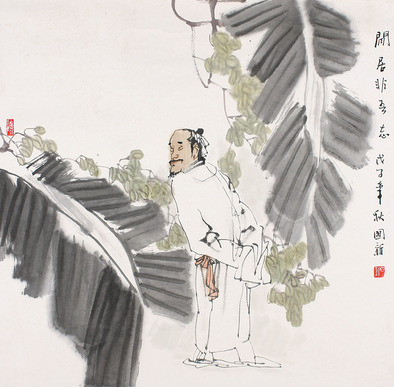 閒居非吾志 戊子年秋國